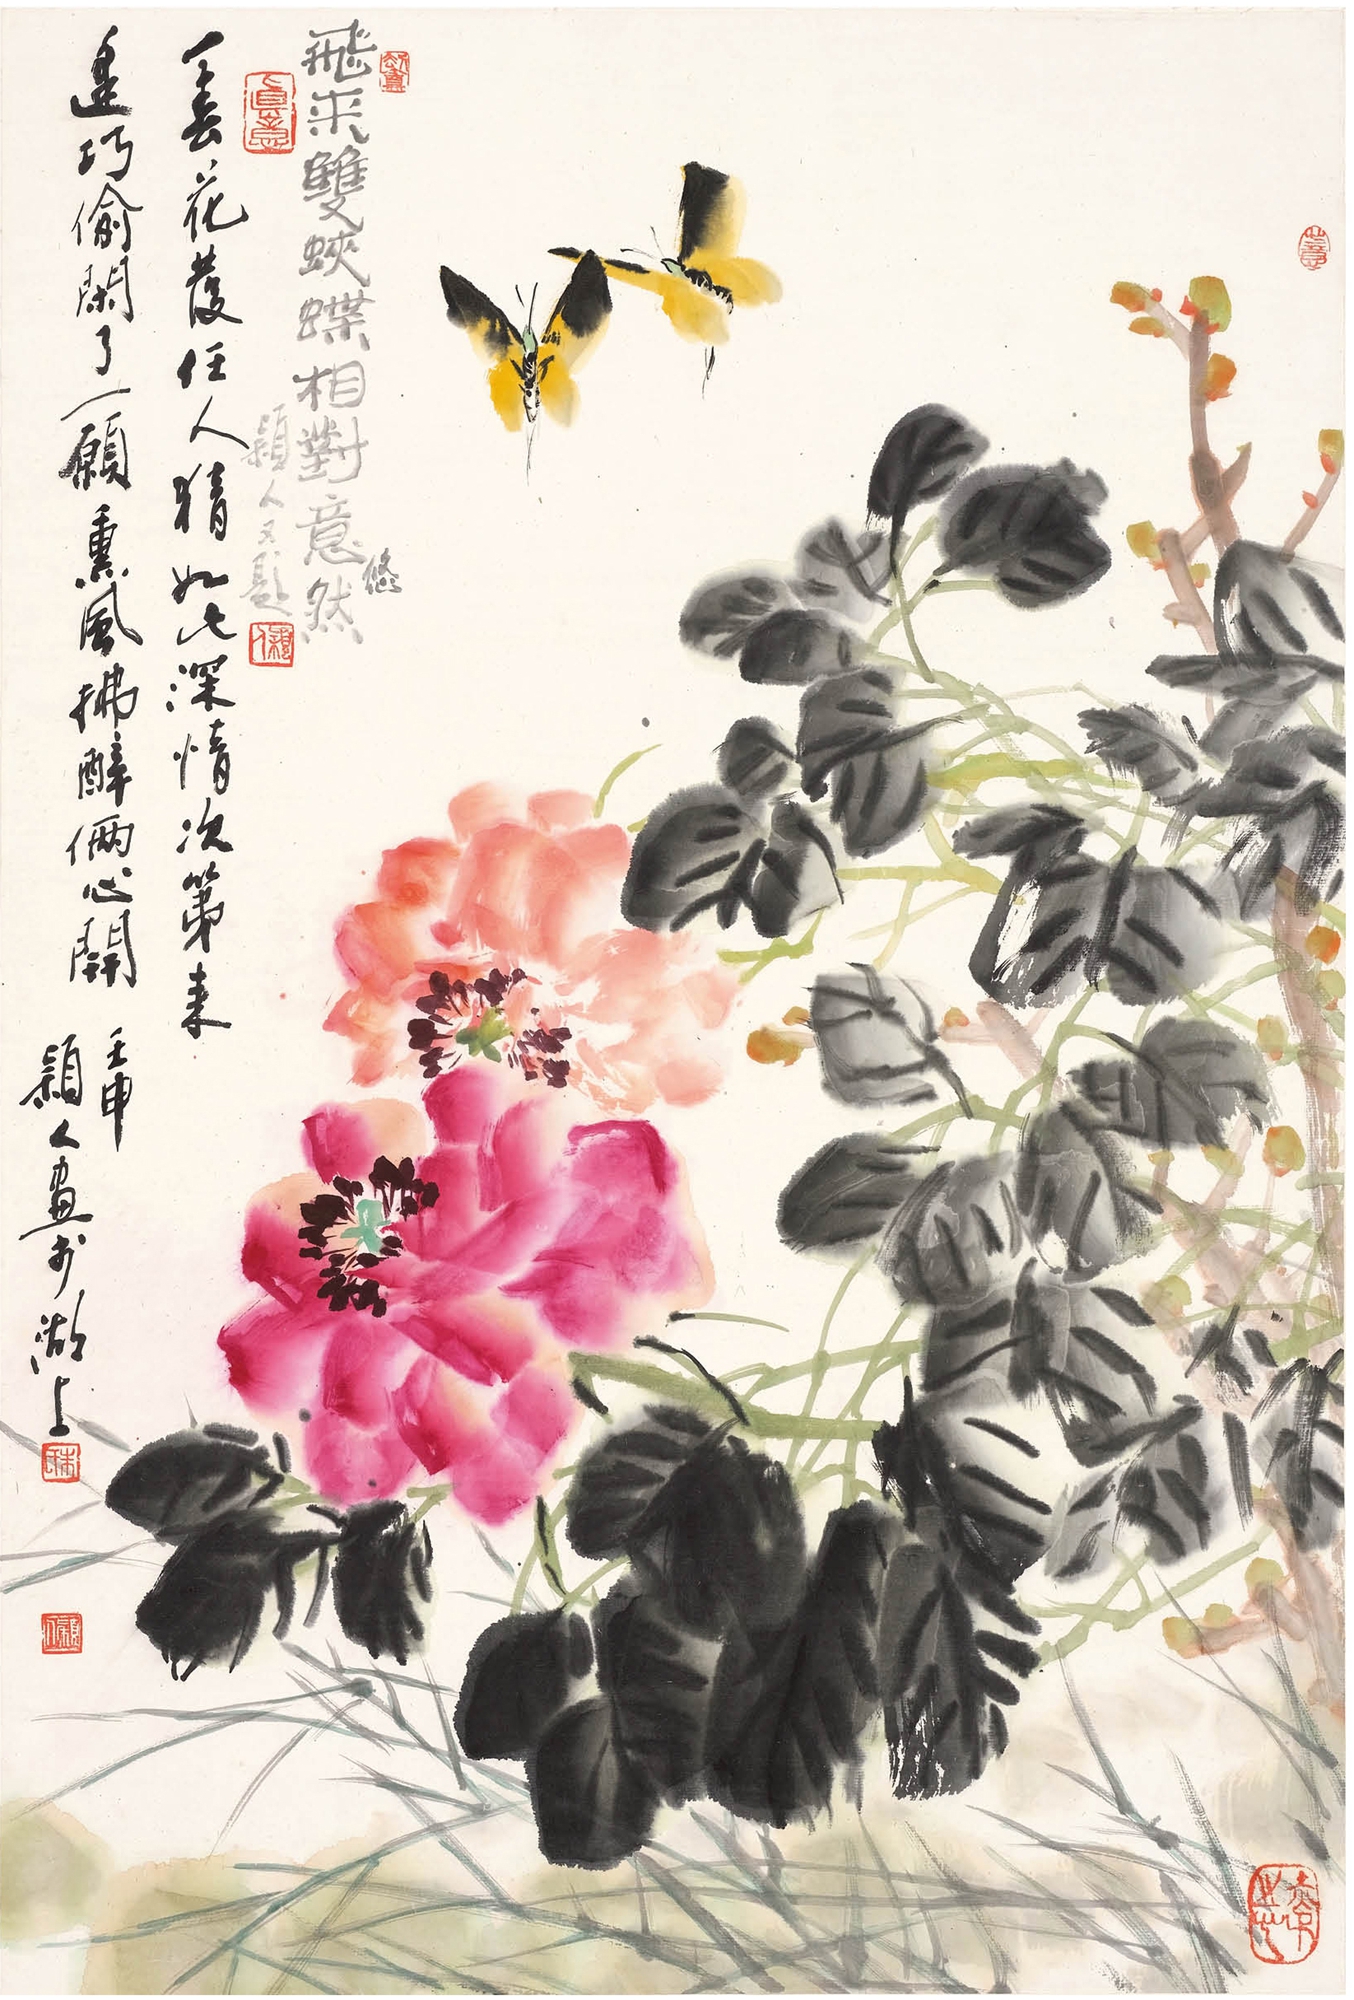 飛来雙蛺蝶相對意悠然
穎人又題
穎人
真意
一春花發任人猜如此深情次第来
巧偷閑了一願熏風拂醉倆心開
壬申
穎人画於湖上
穎人